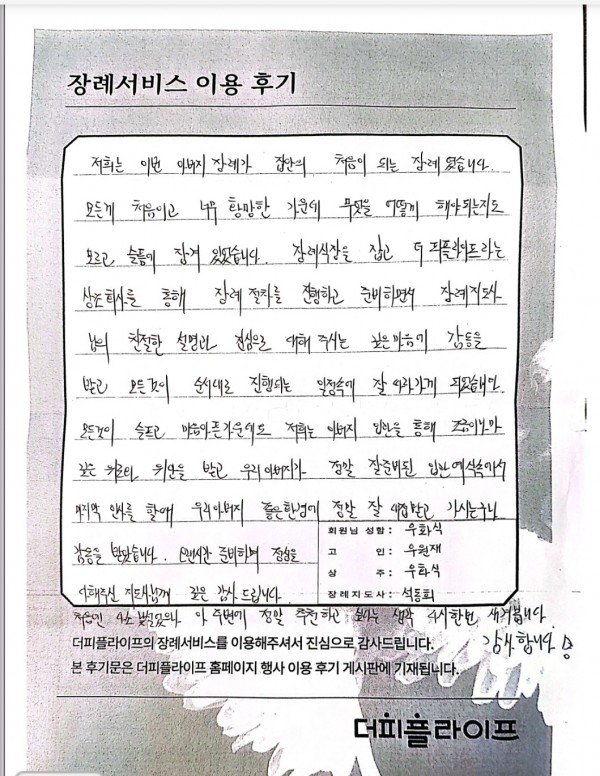 장례서비스 이용 후기
저희는 이번 아버지 장례가 집안의 처음이 되는 장례 였습니다.
모든게 처음이고 너무 황망한 가운데 무엇을 어떻게 해야 되는지도
모르고 슬픔에 잠겨 있었습니다. 장례식장을 잡고 더 피플라이프라는
상조회사를 통해 장례 절차를 진행하고 준비하면서 장례지도사
님의 친절한 설명과 진심으로 대해 주시는 깊은마음에 감동을
받고 모든것이 순서대로 진행되는 일정속에 잘 따라가게 되었습니다
모든것이 슬프고 마음아픈가운데도 저희는 아버지 입관을 통해 조금이나마
깊은 위로와 위안을 받고 우리아버지가 정말 잘준비된 입관예식속에서
마지막 인사를 할때 우리아버지 좋은환경에 정말 잘 대접받고 가시는구나
감동을 받았습니다. 준비하며 진심을
다해주신 지도사님께 깊은 감사 드립니다.
회원님 성함 : 우화식
고 인 : 우원재
상 주 : 우화식
장례지도사 : 석동희
아 주변에 정말 추천하고 싶다는 생각 다시한번 새겨봅니다.
감사합니다
더피플라이프의 장례서비스를 이용해주셔서 진심으로 감사드립니다.
본 후기문은 더피플라이프 홈페이지 행사 이용 후기 게시판에 기재됩니다.
더피플라이프